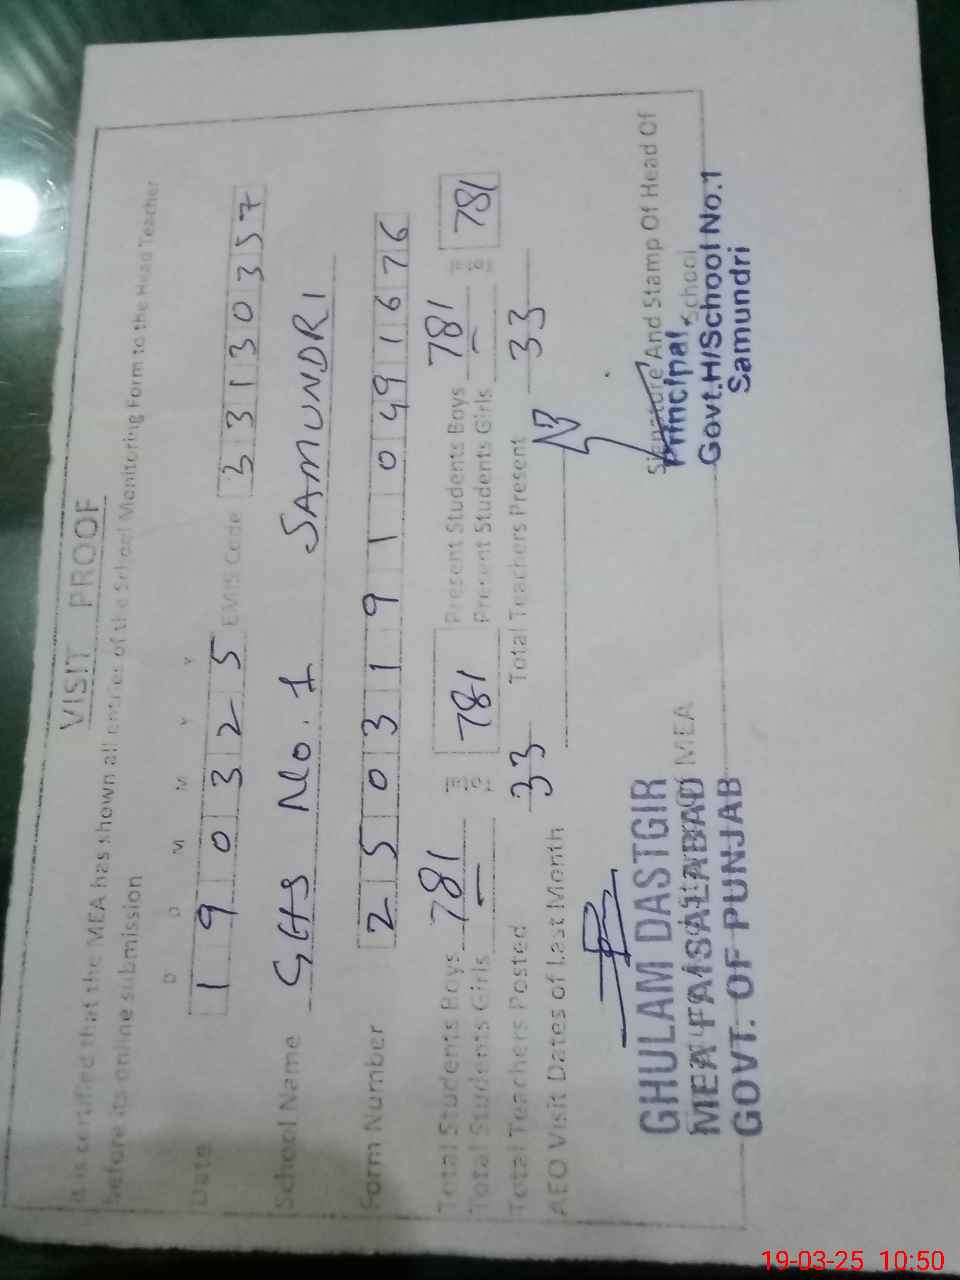 VISIT PROOF
It is certified that the MEA has shown all entries of the School Monitoring Form to the Head Teacher
before its online submission
D D M M Y Y
Date 1 9 0 3 2 5 EMIS Code 3 3 1 3 0 3 5 7
School Name GHS No. 1 SAMUNDRI
Form Number 2 5 0 3 1 9 1 0 4 9 1 6 7 6
Total Students Boys 781 = 781 Present Students Boys 781 = 781
Total Students Girls — Present Students Girls —
Total Teachers Posted 33 Total Teachers Present 33
AEO Visit Dates of Last Month
Signature And Stamp Of Head Of
School
Principal
Govt.H/School No.1
Samundri
MEA
GHULAM DASTGIR
MEA FAISALABAD
GOVT. OF PUNJAB
19-03-25 10:50